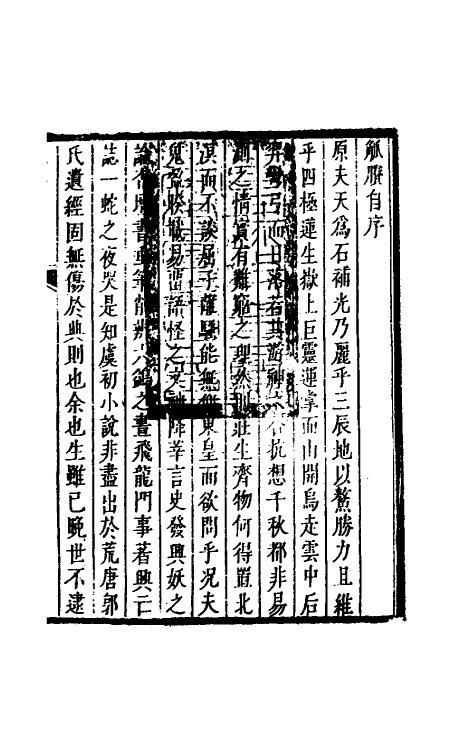 觚賸自序
原夫天爲石補光乃麗乎三辰地以鰲勝力且維
乎四極蓮生嶽上巨靈運掌而山開烏走雲中后
羿彎弓而日落若其遊神 抗想千秋都非易
測之情實有難窮之理然則莊生齊物何得置北
溟而不談屈子離騷能無供東皇而欲問乎況夫
鬼盈睽載易留語怪之文神降莘言史發興妖之
論 書 筆 鴿之晝飛龍門事著興亡
誌一蛇之夜哭是知虞初小說非盡出於荒唐郭
氏遺經固無傷於典則也余也生雖已晚世不逮